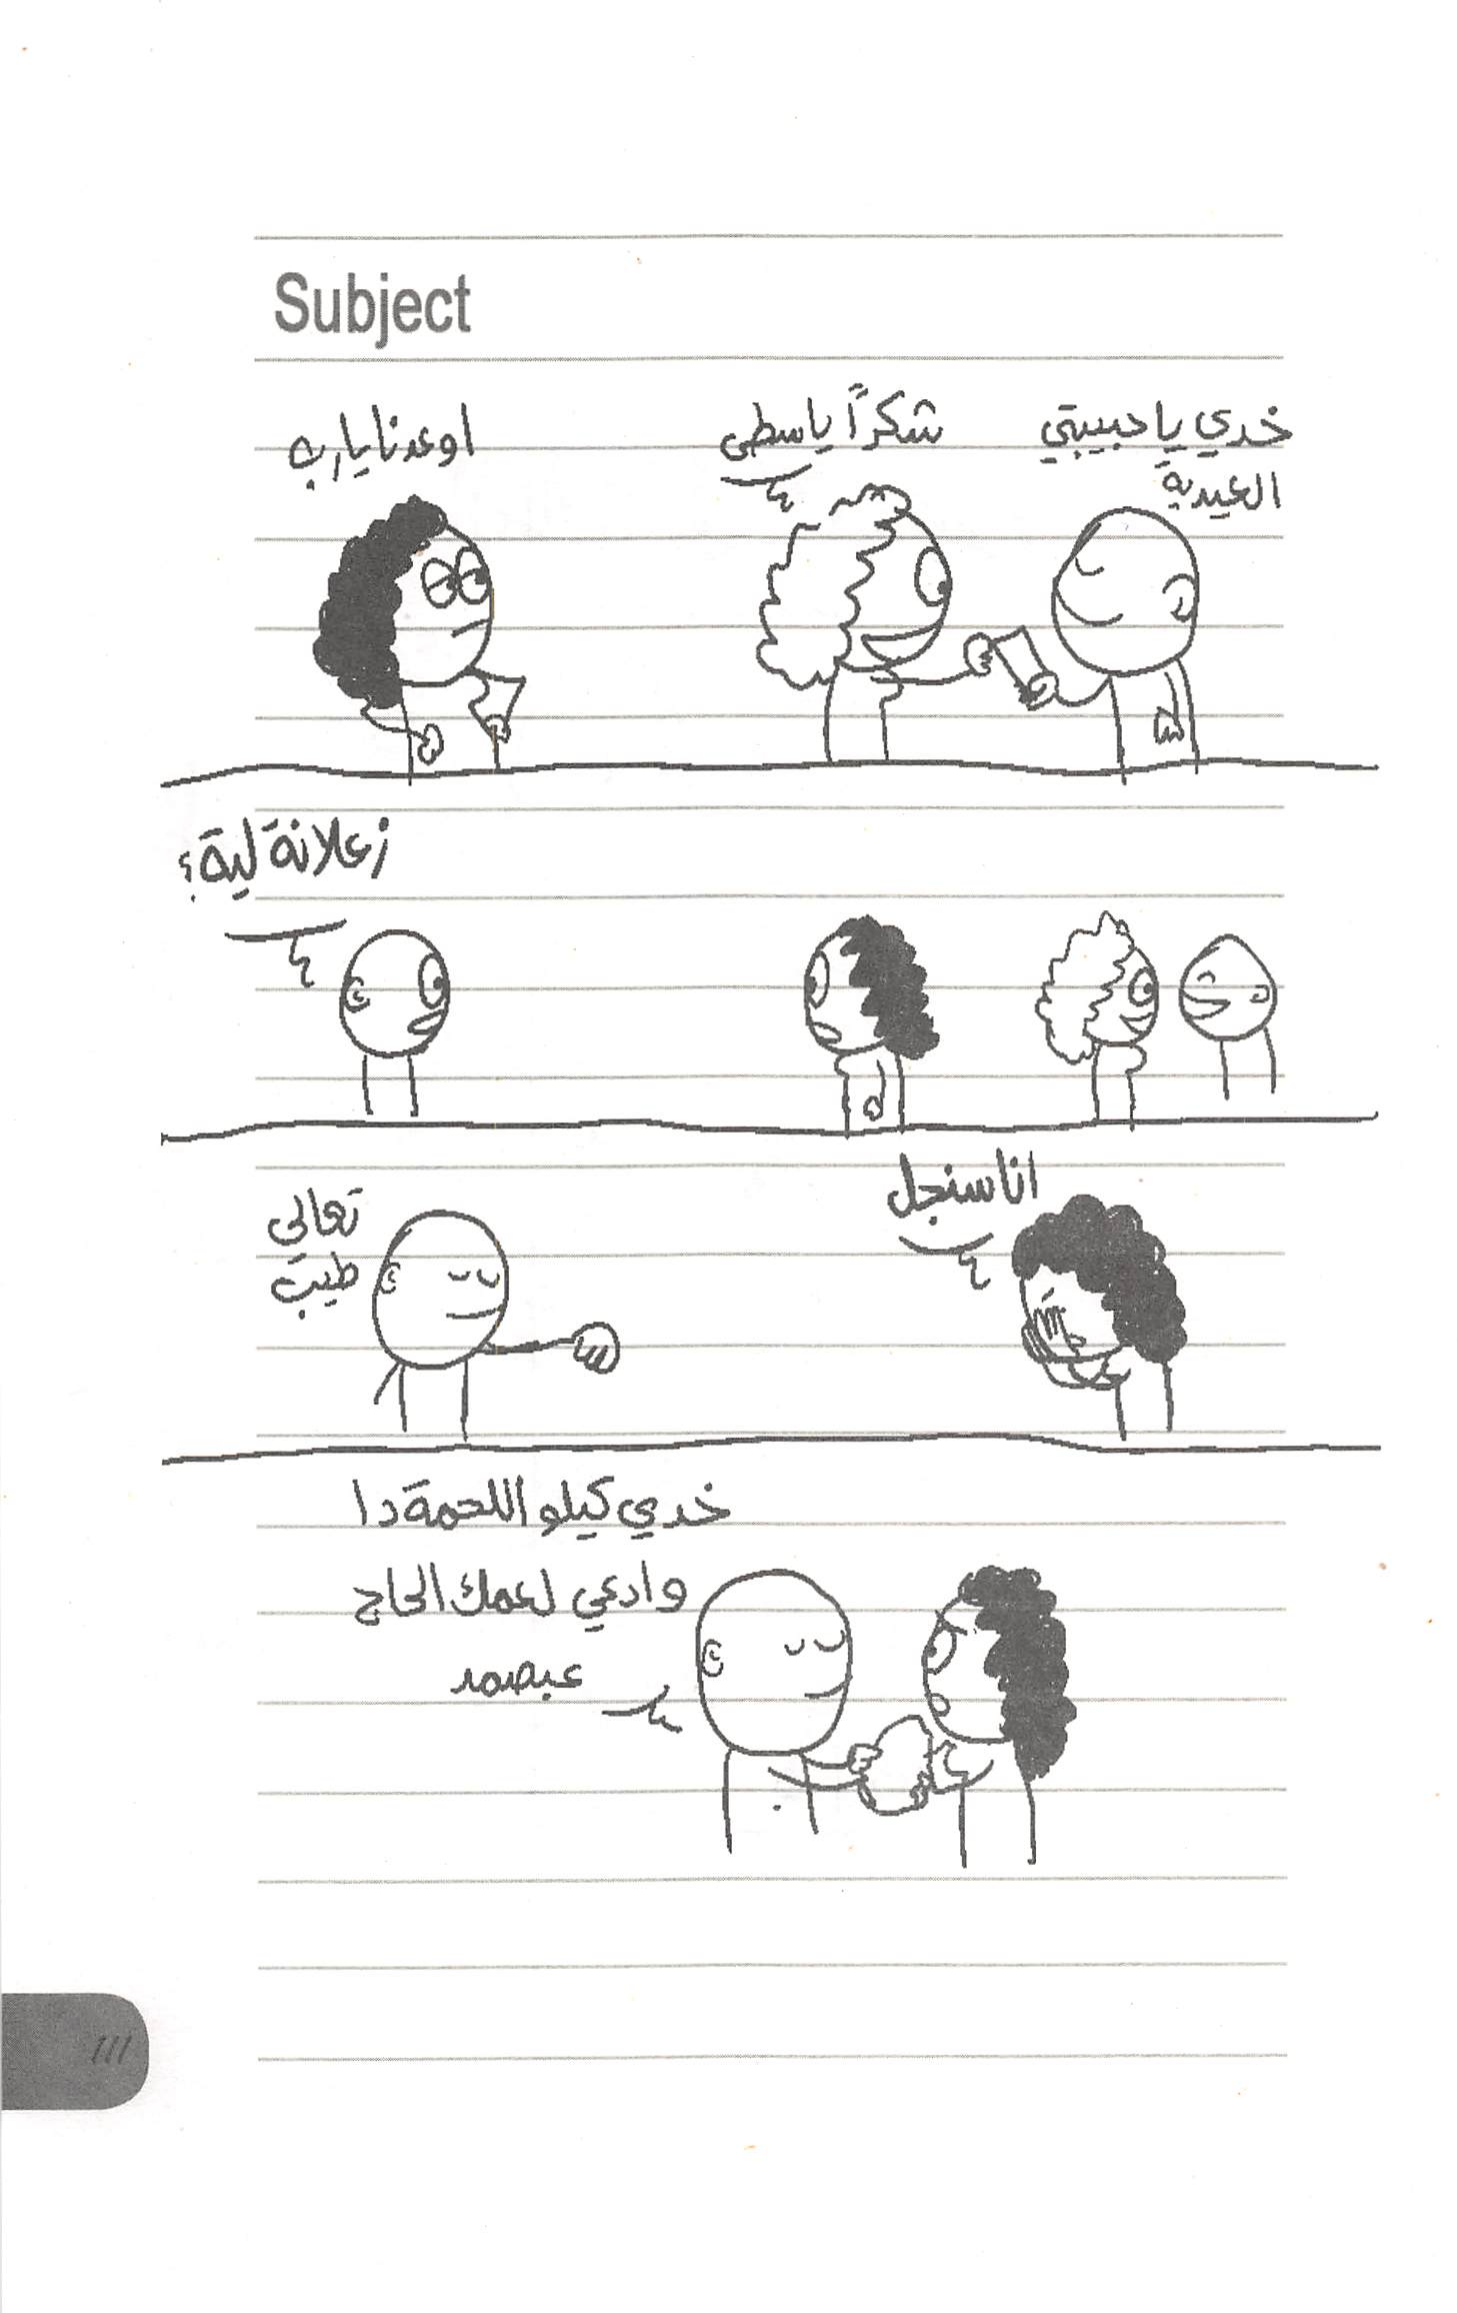 Subject
خدي يا حبيبتي
العيدية
شكراً ياسطى
اوعدنا يا رب
زعلانة لية؟
انا سنجل
تعالى
طيب
خدي كيلو اللحمة دا
وادعي لعمك الحاج
عبصمد
111